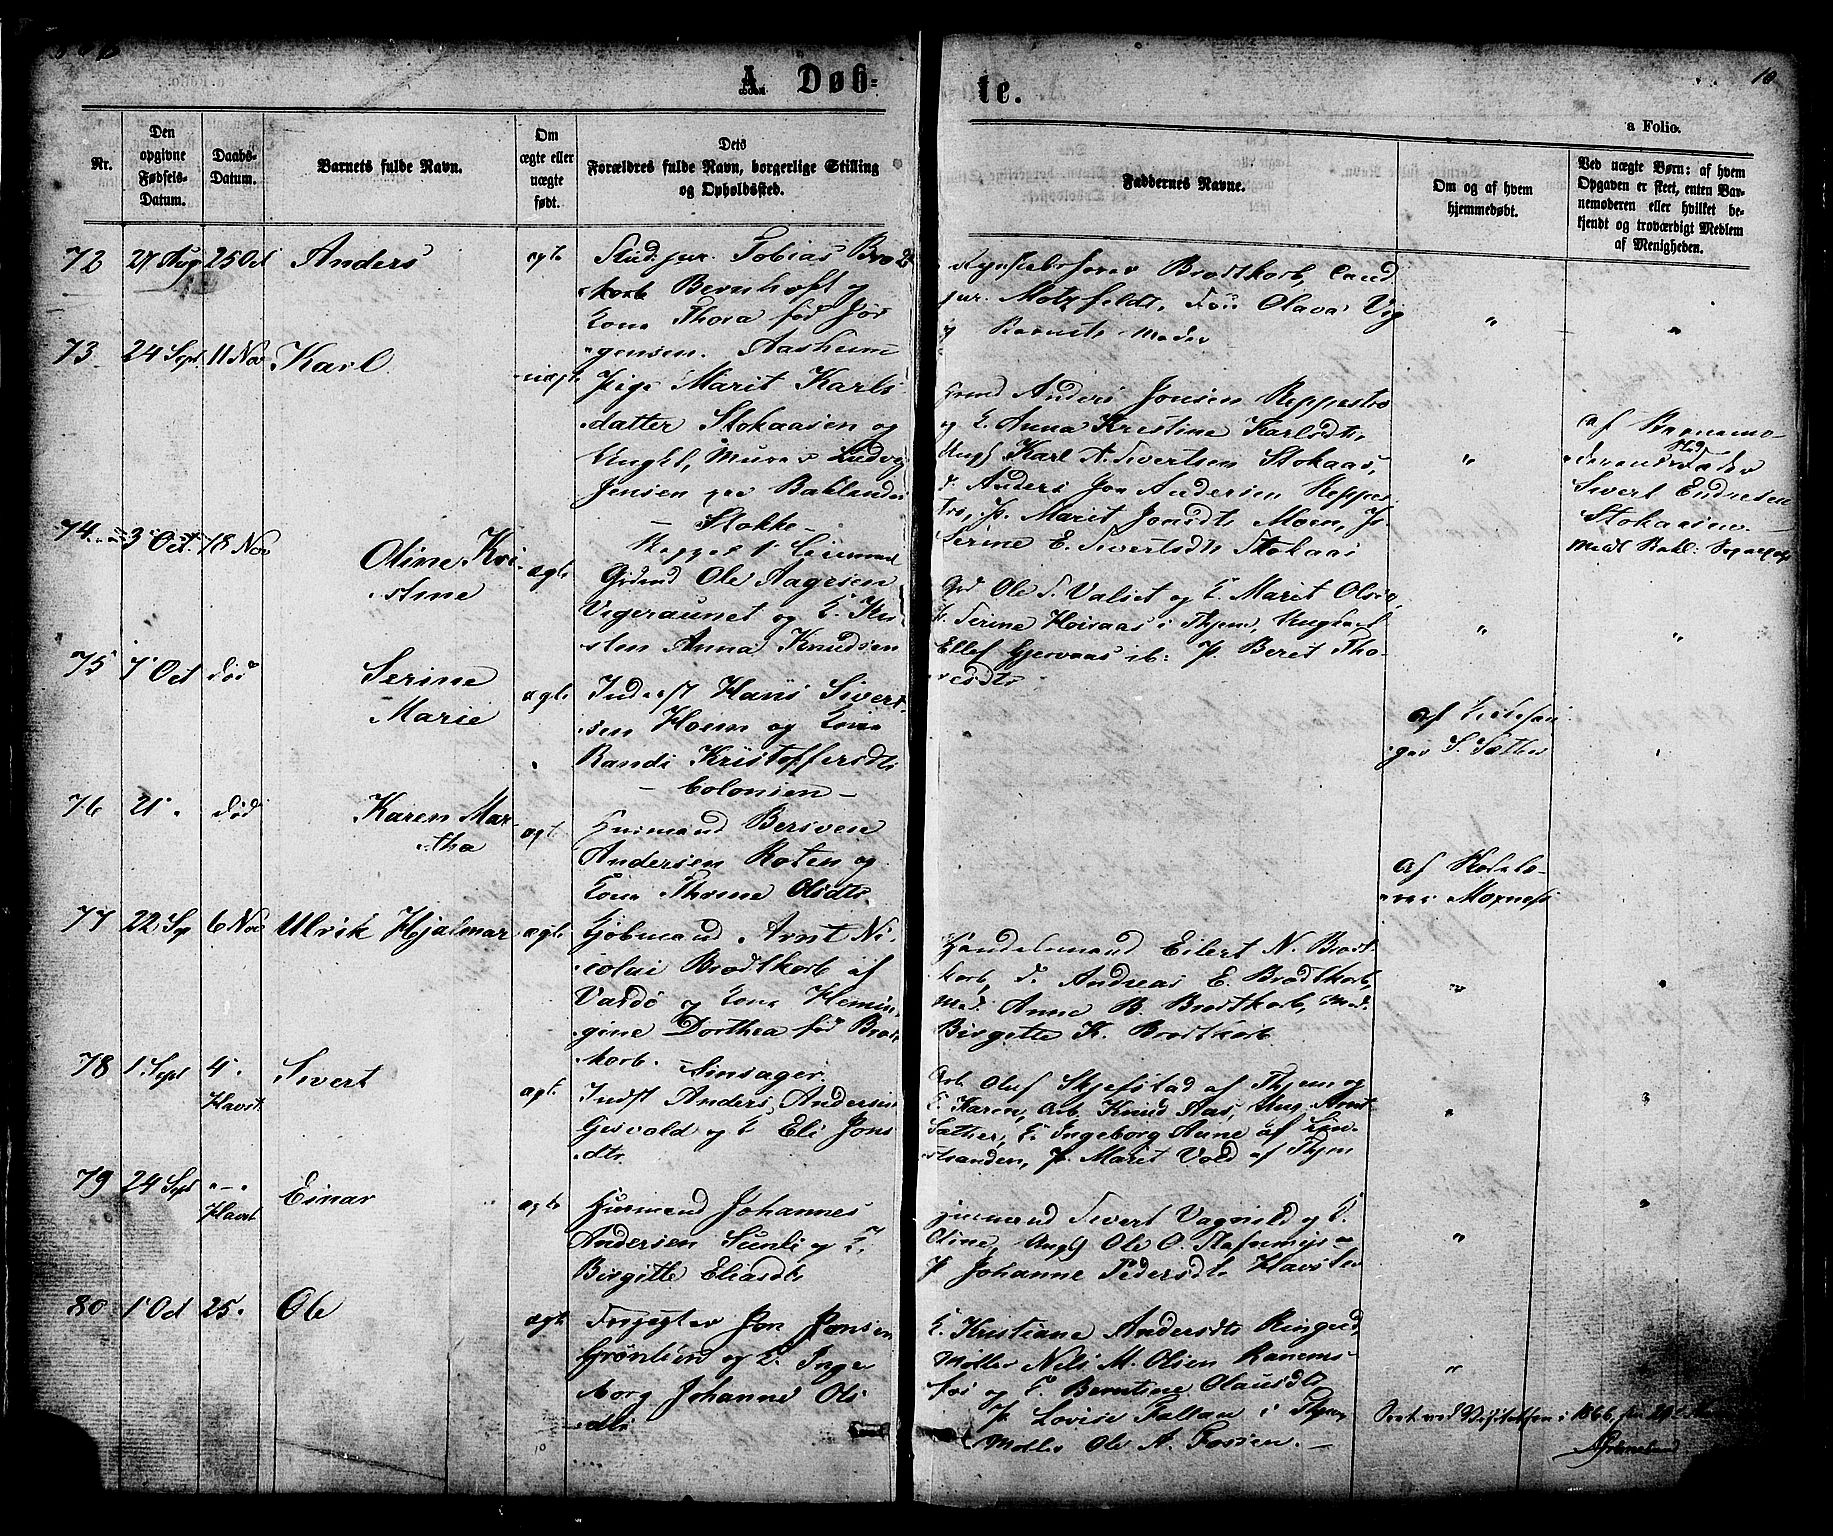 10
A. Døb=
te.
a Folio.
Nr.
Den
opgivne
Fødsels-
Datum.
Daabs-
Datum.
Barnets fulde Navn.
Om
ægte eller
uægte
født.
Dets
Forældres fulde Navn, borgerlige Stilling
og Opholdssted.
Faddernes Navne.
Om og af hvem
hjemmedøbt.
Ved uægte Børn: af hvem
Opgaven er skeet, enten Bar-
nemoderen eller hvilket be-
kjendt og troværdigt Medlem
af Menigheden.
72 27 Aug 25 Oct Anders ægte
Stud. jur. Tobias Brodt
korb Bernhoft og
Kone Thora fød Jør
gensen. Aasheim
Brodtkorb, Cand
jur. Motzfeldt, Olava Vig
og Barnets Moder
" "
73 24 Sept. 11 Nov Karl uægte
Pige Marit Karls
datter Stokaasen og
Ungk. Murer Ludvig
Jensen paa Baklandet
- Stokke -
Anders Jonsen Reppestrø
og K. Anna Kristine Karlsdtr,
Ungk Karl A. Sivertsen Stokaas,
Anders Jon Andersen Reppes
trø, P. Marit Jonsdtr Moen, P.
Serine E. Sivertsdtr Stokaas
"
af Barnemo-
deren
Sivert Endresen
Stokaasen
74 3 Oct. 18 Nov Oline Kri-
stine ægte
Gbmd Ole Aagesen
Vigeraunet og K. Kir
sten Anna Knudsen
Ole T. Valset og K. Marit Olsdtr,
P. Serine Hoivaas i Thjem, Ungkarl
Ellef Gjervaas ib: P. Beret Tho-
resdtr
" "
75 7 Oct død Serine
Marie ægte
Inderst Hans Siverts
sen Hoem og Kone
Randi Kristoffersdtr
- Colonien -
af
S. Sæther
76 21 " død Karen Mar-
tha ægte
Husmand Bersven
Andersen Roten og
Kone Thome Olsdtr
af
Moxness
77 22 Sep 6 Nov Ulrik Hjalmar ægte
Kjøbmand Arnt Ni-
colai Brodtkorb af
Vardø og Kone Hemin
gine Dorthea fød Brodt
korb. Sinsager
Handelsmand Eilert N. Brodt-
korb, Andreas E. Brodtkorb,
Mad. Anne B. Brodtkorb, Mad.
Birgitte K. Brodtkorb
" "
78 1 Sept 4 "
Havst. Sivert ægte
Indst Anders Andersen
Gisvold og K Eli Jons
dtr
Arb. Oluf Skjefstad af Thjem og
K. Karen, Arb. Knud Aas, Ung. Arnt
Sæther, K. Ingeborg Aune af
stranden, P. Marit Vold af Thjem
" "
79 24 Sept " - "
Havst Einar ægte
Husmand Johannes
Andersen Sunli og K.
Birgitte Eliasdtr
Husmand Sivert Vagnild og K.
Oline, Ungk Ole O. og
P Johanne Pedersdtr Havsten
" "
80 1 Oct 25 " Ole ægte
Forpagter Jon Jonsen
Grønlien og K. Inge
borg Johanne Ols
dtr
K. Kristiane Andersdtr Ringud,
Møller Nils M. Olsen Ranems
fos og K. Berntine Olausdtr
P Lovise Fallan i Thjem
Møller Ole A. Fossen. -
"
Seet ved Visitatsen i 1866,